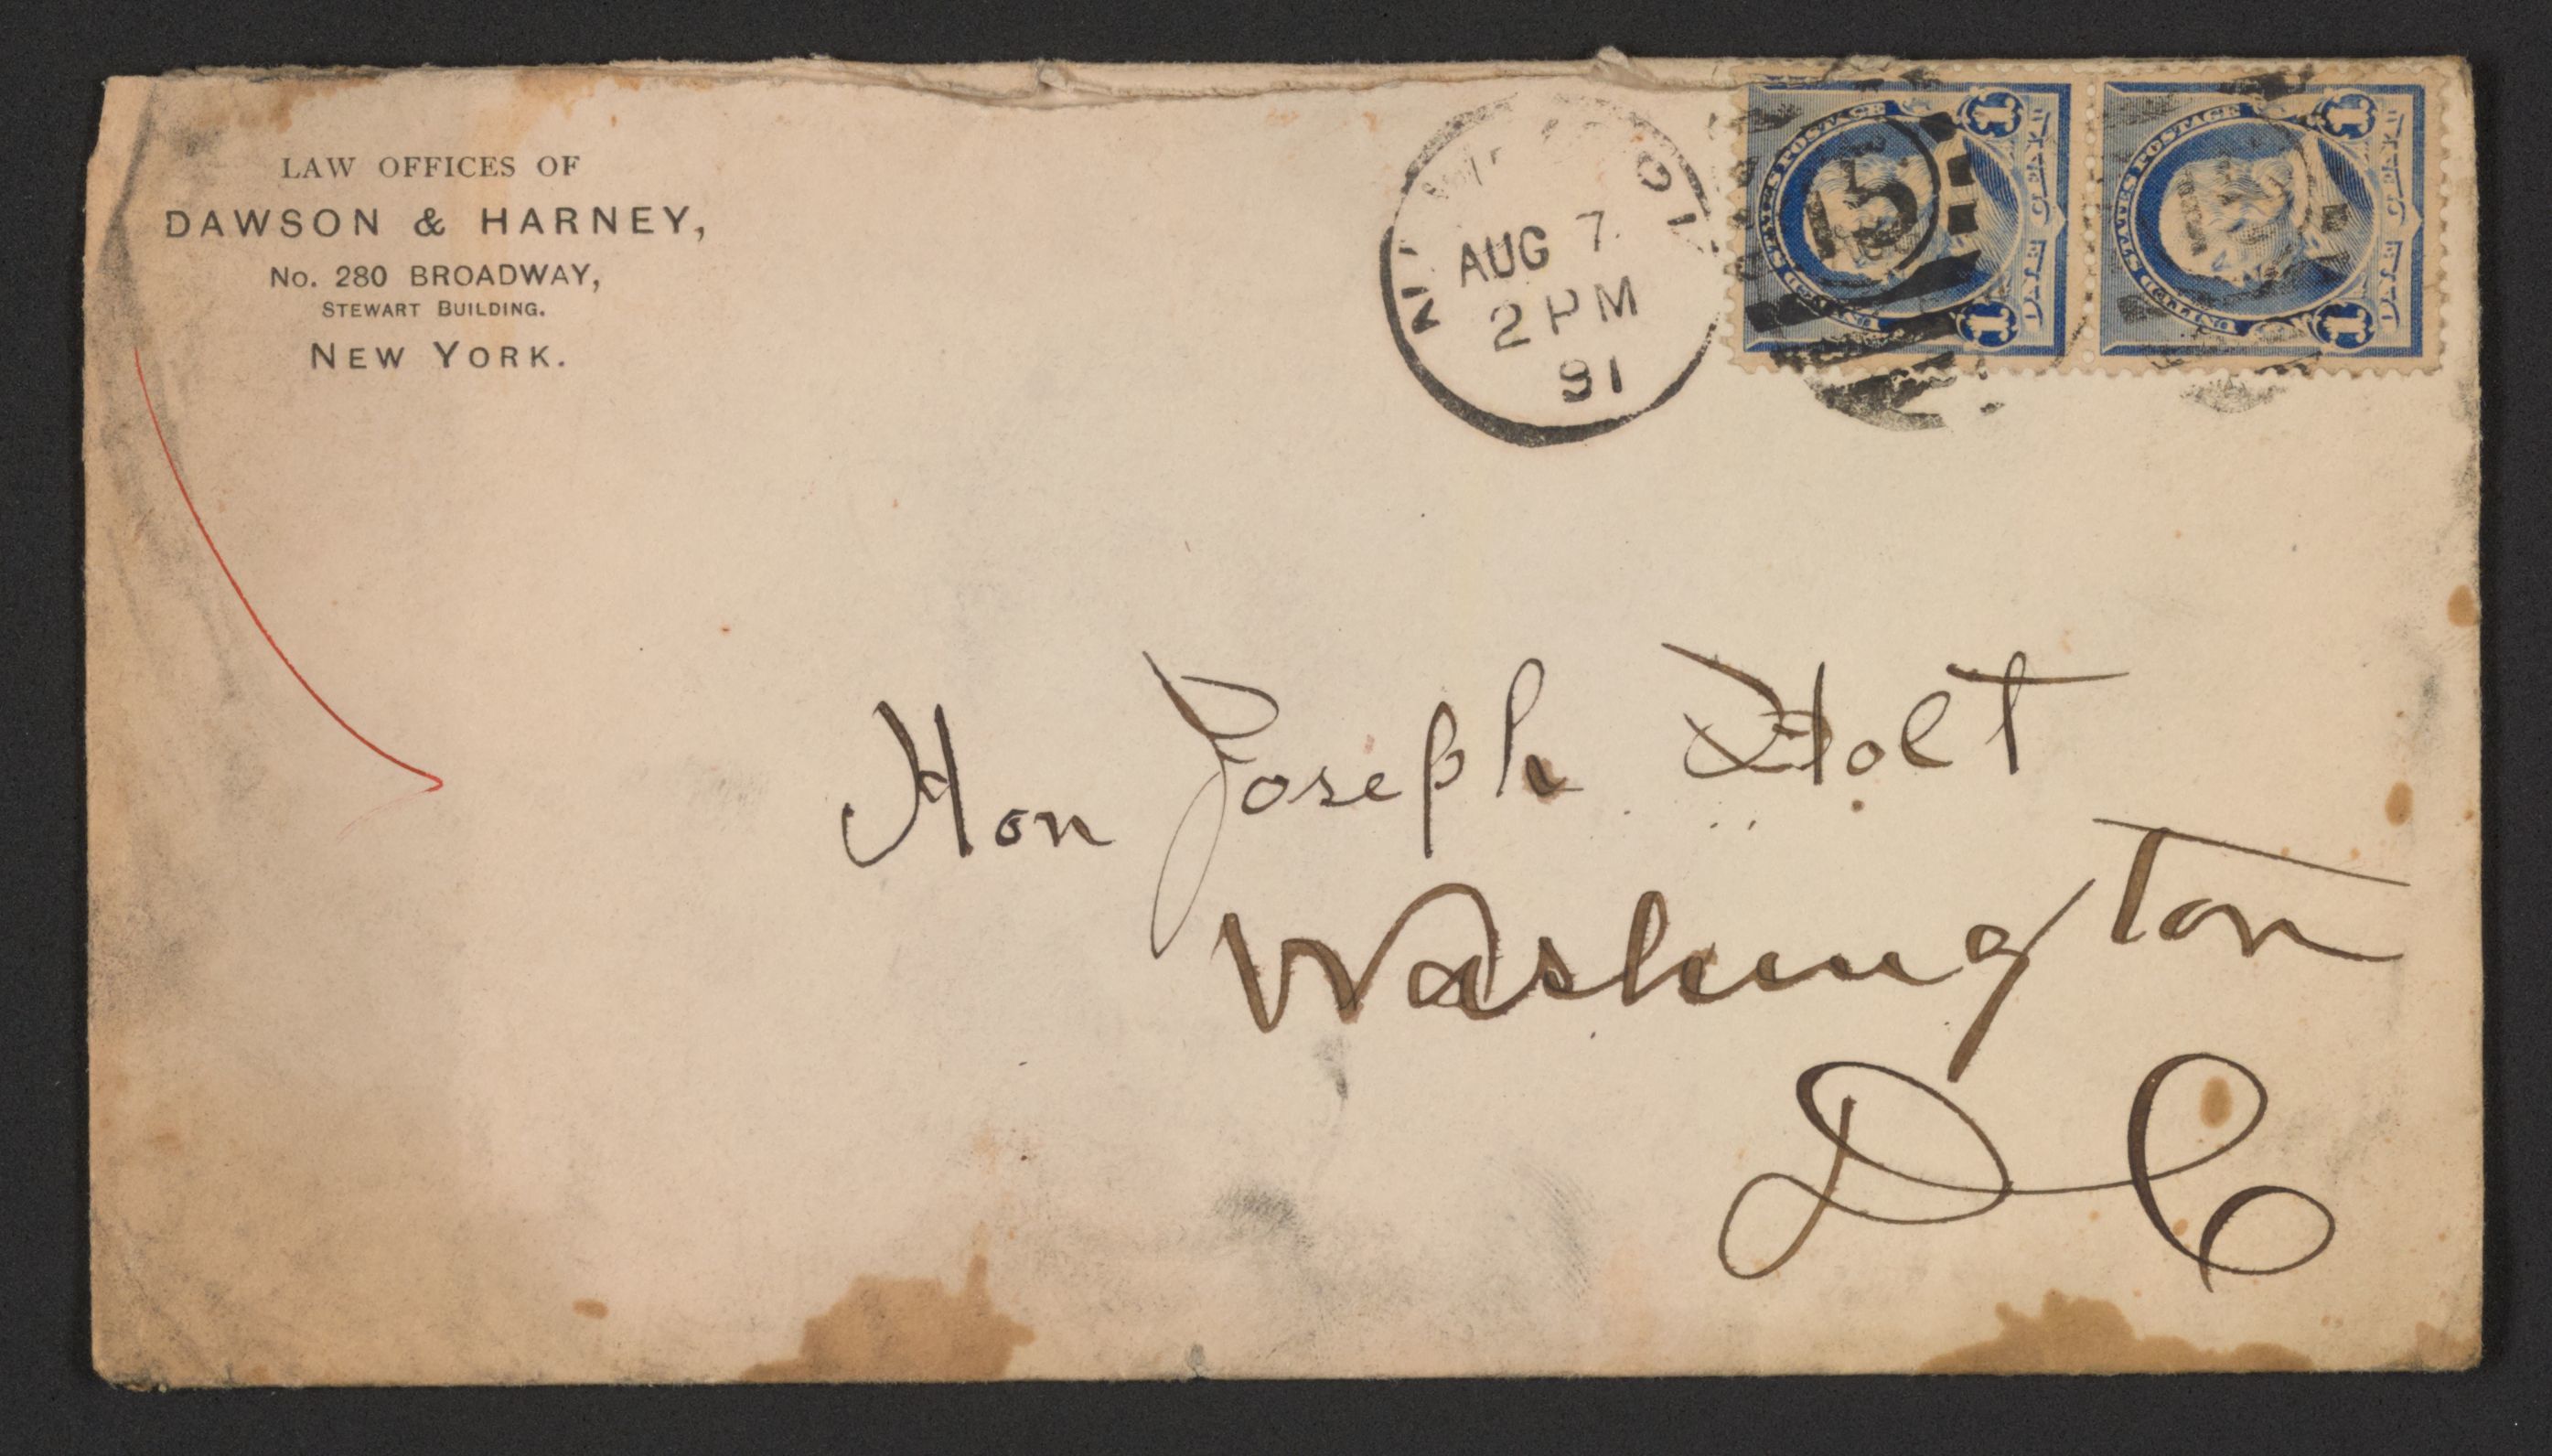 LAW OFFICES OF
DAWSON & HARNEY,
No. 280 BROADWAY,
STEWART BUILDING.
NEW YORK.
AUG 7
2 PM
91
5
UNITED STATES POSTAGE
ONE CENT
1 1
UNITED STATES POSTAGE
ONE CENT
1 1
Hon Joseph Holt
Washington
D C